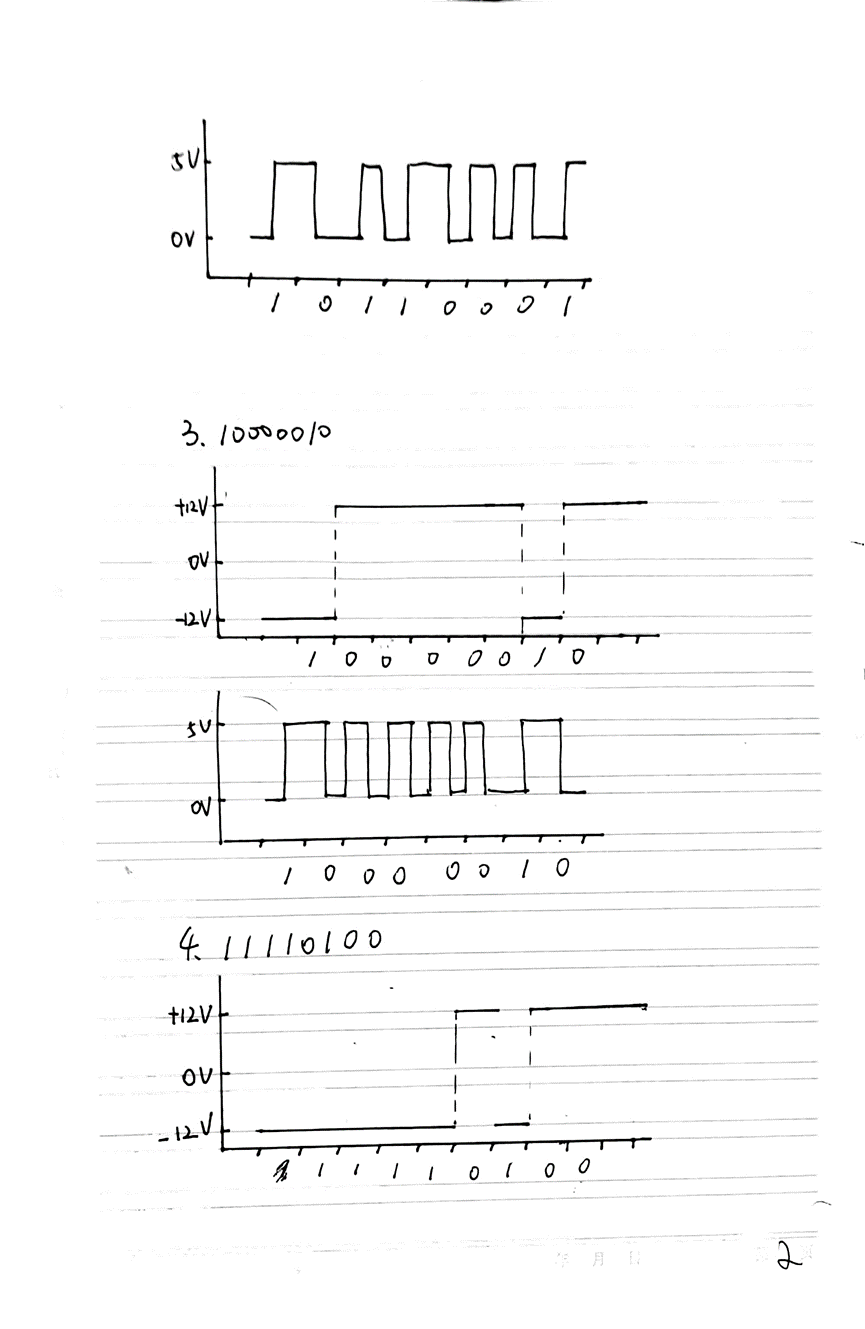 5V
0V
1 0 1 1 0 0 0 1
3. 10000010
+12V
0V
-12V
1 0 0 0 0 0 1 0
5V
0V
1 0 0 0 0 0 1 0
4. 11110100
+12V
0V
-12V
1 1 1 1 0 1 0 0
年 月 日
2